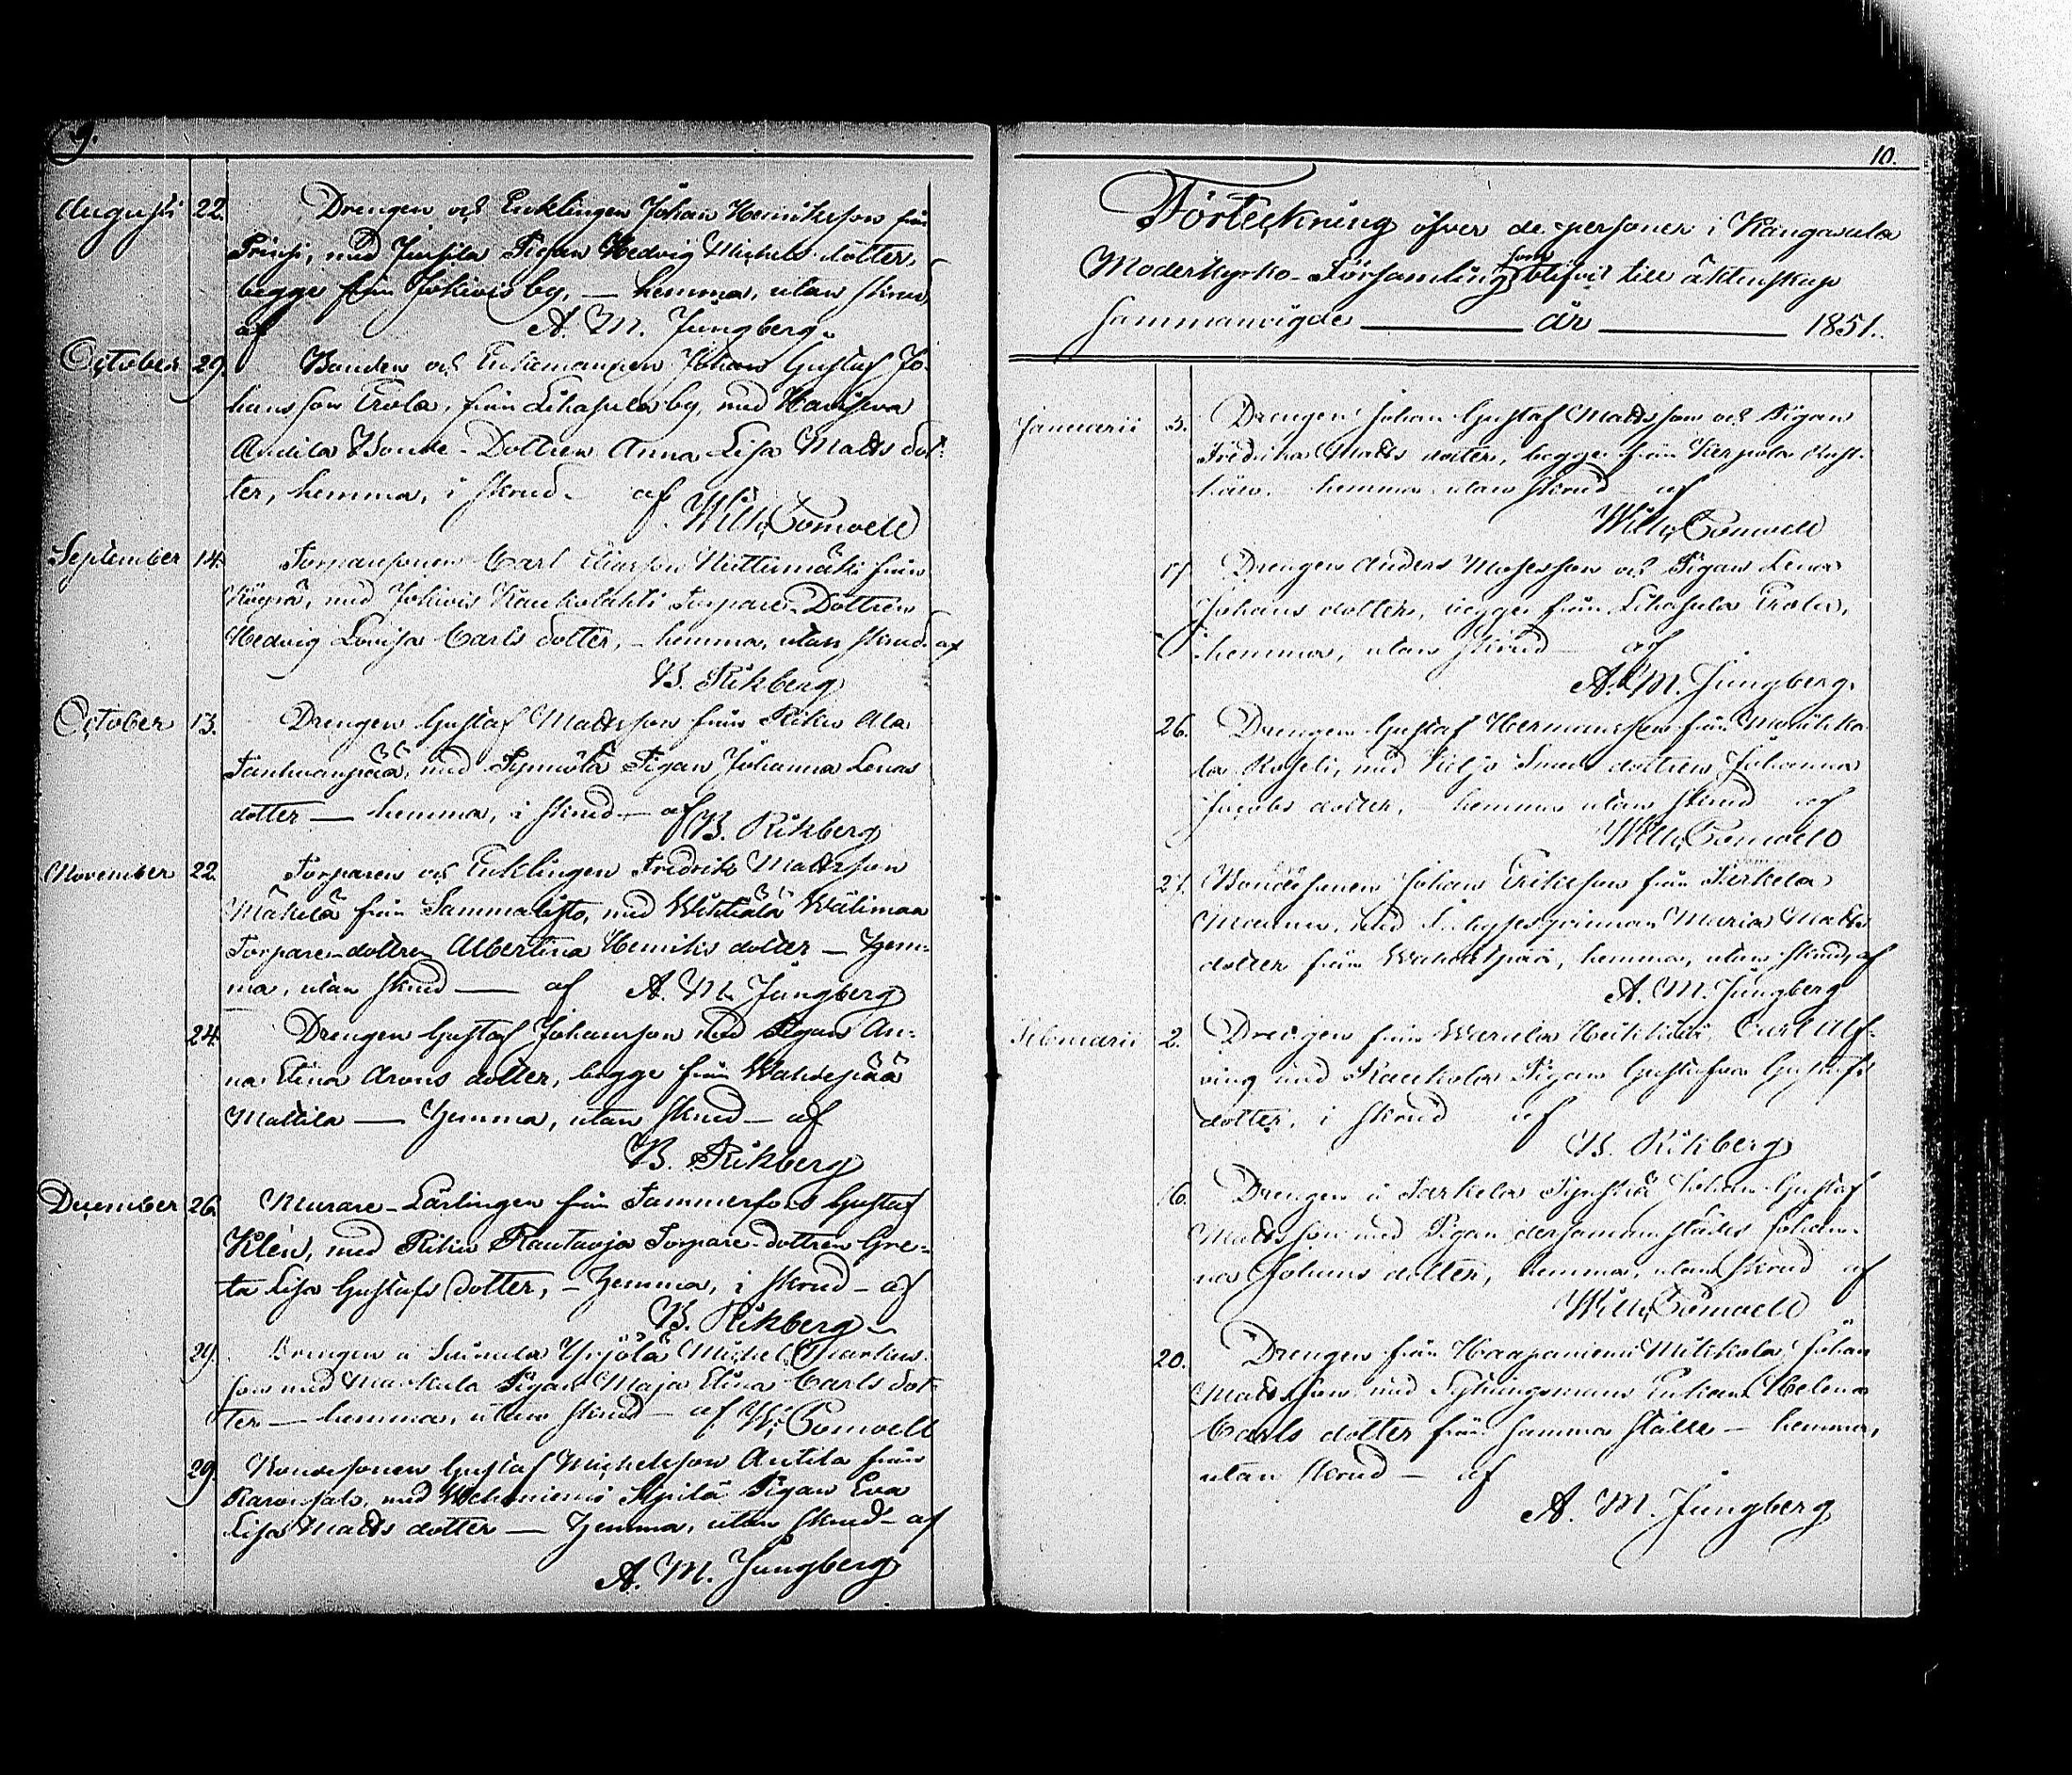 9.
Augusti 22. Drengen och Enklingen Johan Henriksson från
Prinsi, med Jussila Pigan Hedvig Michels dotter,
begge från Jokiois by, — hemma, utan skrud
af A. M. Jungberg.
October 29. Bonden och Enkemannen Johan Gustaf Jo-
hansson Erola, från Lihasula by, med Haviseva
Anttila Bonde-Dottren Anna Lisa Matts dot-
ter, hemma, i skrud – af
Wilh.
September 14. Torparesonen Carl Eliasson Huttunmäki från
med Jokiois Kaukolahti Torpare-Dottren
Hedvig Lovisa Carls dotter, – hemma, utan skrud. af
B. Rikberg
October 13. Drengen Gustaf Mattsson från Riku Ala
med Pigan Johanna Lenas
dotter — hemma, i skrud – af B. Rikberg
November 22. Torparen och Enklingen Fredrik Mattsson
Mäkelä från Sammalisto, med Wihtiälä Wälimaa
Torpare-dottren Albertina Henriks dotter — hem-
ma, utan skrud — af A. M. Jungberg
24. Drengen Gustaf Johansson med Pigan An-
na Elina Arons dotter, begge från Wahdespää
Mattila — hemma, utan skrud – af
B. Rikberg
December 26. Murare-Lärlingen från Tammerfors Gustaf
Klén, med Riku Rautaoja Torpare-dottren Gre-
ta Lisa Gustafs dotter, – hemma, i skrud – af
B. Rikberg –
29. Drengen å Suinula Yrjölä Michel Markus-
son med Markula Pigan Maja Elina Carls dot-
ter — hemma, utan skrud – af W.
29. Bondesonen Gustaf Michelsson Anttila från
med Wehoniemi Sipilä Pigan Eva
Lisa Matts dotter — hemma, utan skrud – af
A. M. Jungberg
10.
Förteckning öfver de personer i Kangasala
Moderkyrko-Församling som blifvit till äktenskap
sammanvigde — år — 1851.
Januarii 5. Drengen Johan Gustaf Mattsson och Pigan
Fredrika Matts dotter, begge från Kerpola Rust-
håll. hemma utan skrud – af
Wilh.
17. Drengen Anders Mosesson och Pigan Lena
Johans dotter, begge från Lihasula Erola,
hemma, utan skrud — af
A. M. Jungberg.
26. Drengen Gustaf Hermansson från
med Smeds dottren Johanna
Jacobs dotter, – hemma utan skrud af
Wilh.
27. Bondesonen Johan Eriksson från Kerkola
med Maria Matts
dotter från hemma, utan skrud, af
A. M. Jungberg
Februarii 2. Drengen från Warala Heikkilä, Carl Alf-
ving med Kaukola Pigan Gustafva Gustafs
dotter, i skrud af
B. Rikberg
16. Drengen å Johan Gustaf
Mattsson med Pigan dersammastädes Johan-
na Johans dotter, hemma, utan skrud af
Wilh.
20. Drengen från Haapaniemi Mikkola, Johan
Mattsson med Sytningsmans Enkan Helena
Carls dotter från samma ställe — hemma,
utan skrud — af
A. M. Jungberg